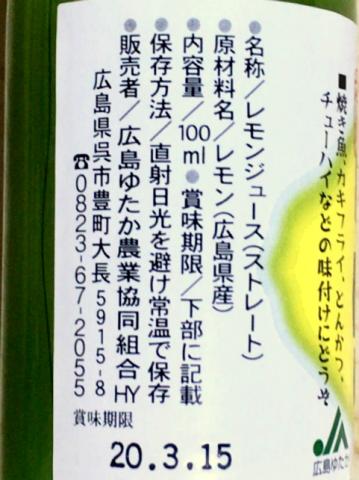 ■焼き魚、カキフライ、とんかつ、
チューハイなどの味付けにどうぞ
●名称/レモンジュース(ストレート)
●原材料名/レモン(広島県産)
●内容量/100ml●賞味期限/下部に記載
●保存方法/直射日光を避け常温で保存
●販売者/広島ゆたか農業協同組合HY
広島県呉市豊町大長5915-8
☎0823-67-2055
賞味期限
20.3.15
JA
広島ゆたか